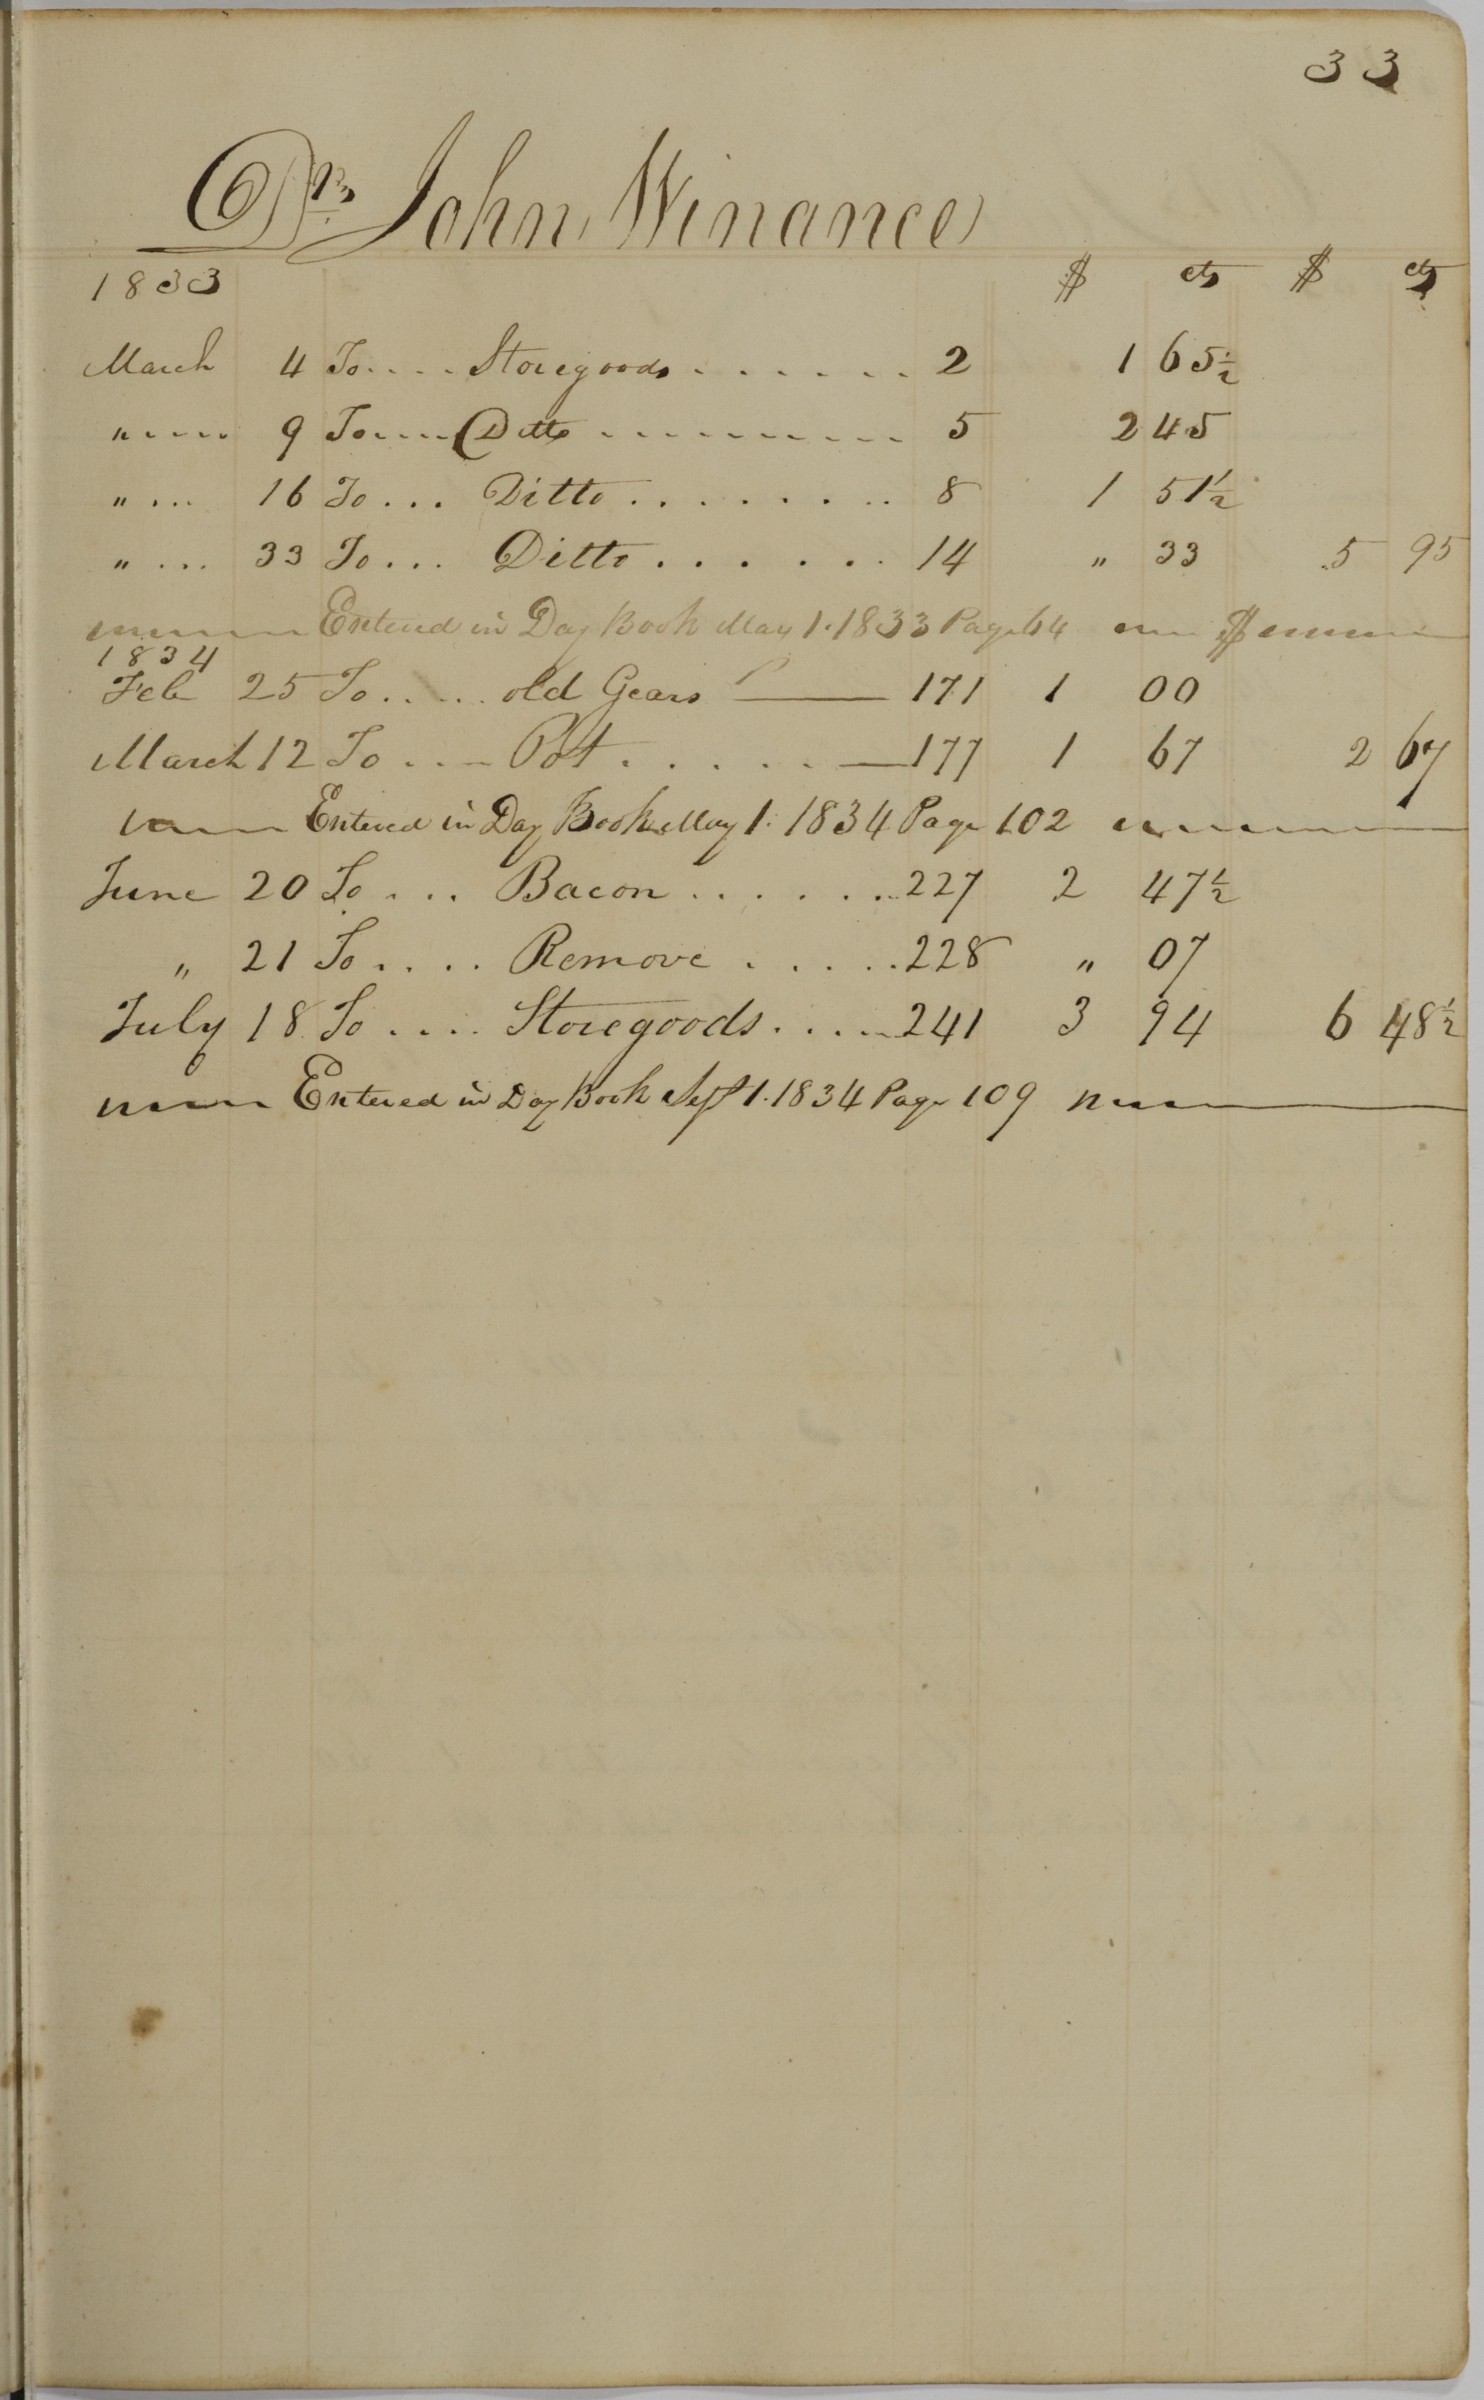 33
Dr. John Winance
1833 $ cts $ cts
March 4 To .... Storegoods ....... 2 1 65½
" .... 9 To .... Ditto ......... 5 2 45
" ... 16 To ... Ditto ........ 8 1 51½
" ... 33 To ... Ditto ...... 14 " 33 5 95
Entered in Day Book May 1. 1833 Page 64 $
1834
Feb 25 To ..... old Gears 171 1 00
March 12 To .... Pot ...... 177 1 67 2 67
Entered in Day Book May 1. 1834 Page 102
June 20 To ... Bacon ...... 227 2 47½
" 21 To .... Remove ..... 228 " 07
July 18 To .... Storegoods ..... 241 3 94 6 48½
Entered in Day Book Sept 1. 1834 Page 109